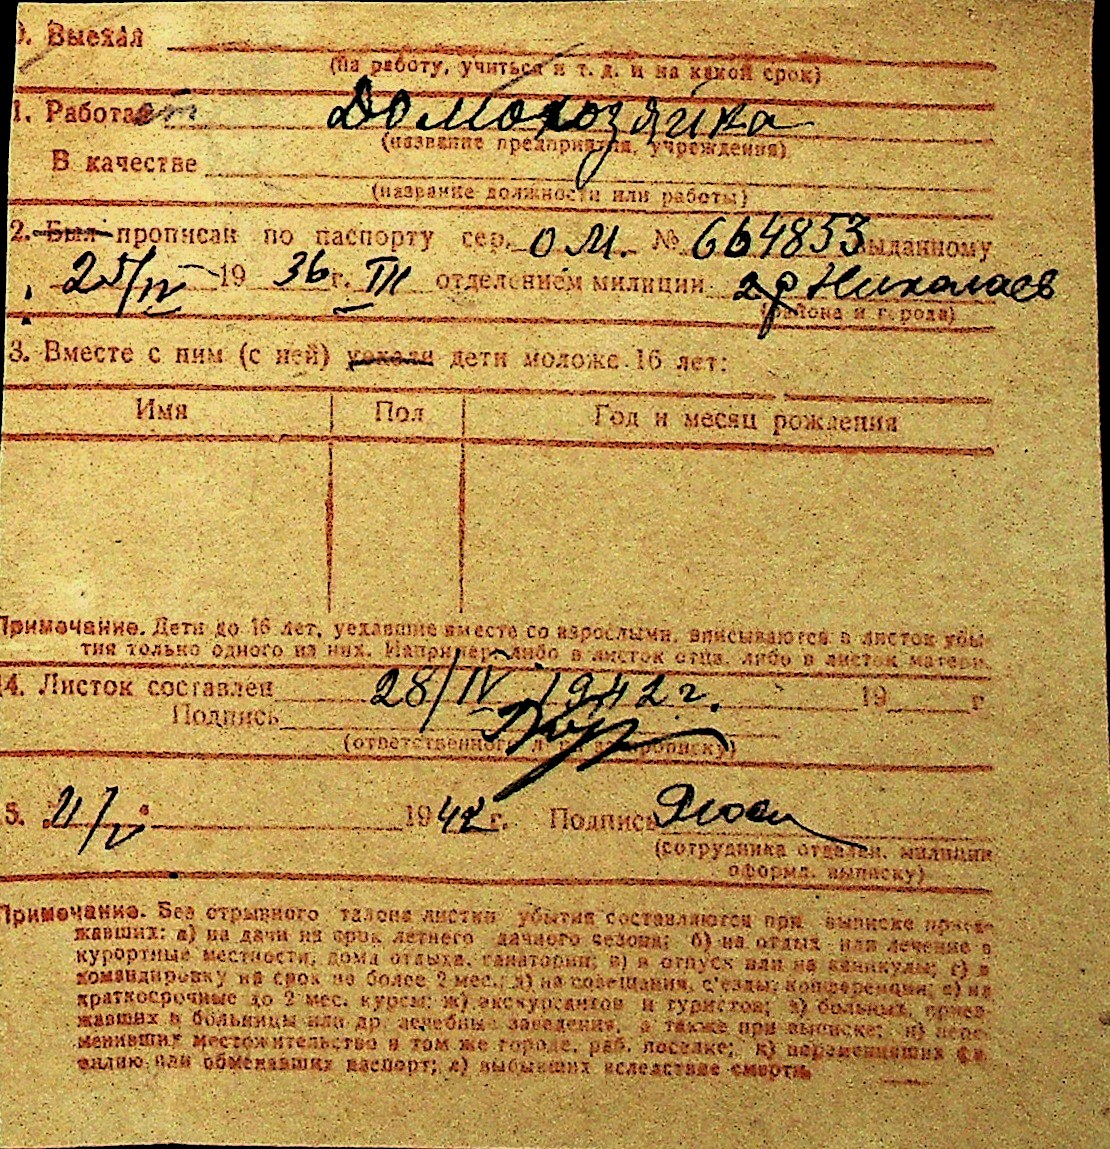 0. Выехал
(на работу, учиться и т. д. и на какой срок)
1. Работает Домохозяйка
(название предприятия, учреждения)
В качестве
(название должности или работы)
2. Был прописан по паспорту сер. ОМ. № 664853 выданному
25/IV 1936 г. III отделением милиции гр Николаев
(района и города)
3. Вместе с ним (с ней) уехали дети моложе 16 лет:
Имя Пол Год и месяц рождения
Примечание. Дети до 16 лет, уехавшие вместе со взрослыми, вписываются в листок убы-
тия только одного из них. Например, либо в листок отца, либо в листок матери.
14. Листок составлен 28/IV 1942 г. 19 г
Подпись
(ответственного л. за прописку)
5. 11/V 1942 г. Подпись
(сотрудника отделен. милиции
оформл. выписку)
Примечание. Без отрывного талона листки убытия составляются при выписке приез-
жавших: а) на дачи на срок летнего дачного сезона; б) на отдых или лечение в
курортные местности, дома отдыха, санатории; в) в отпуск или на каникулы; г) в
командировку на срок не более 2 мес.; д) на совещания, с'езды, конференции; е) на
краткосрочные до 2 мес. курсы; ж) экскурсантов и туристов; з) больных, приез-
жавших в больницы или др. лечебные заведения, а также при выписке; и) пере-
менивших местожительство в том же городе, раб. поселке; к) переменивших фа-
милию или обменявших паспорт; л) выбывших вследствие смерти.